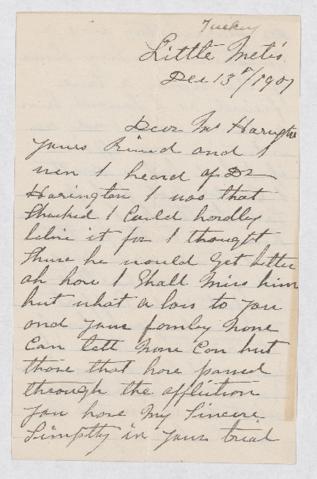 Tuckey
Little Metis
Dec 13th/1907
Dear Mr Harington
Yours Rived and I
wen I heard of Dr
Harington I was that
Shocked I Could hardley
belive it for I thought
Shure he would Get better
ah how I Shall Miss him
but what a loss to you
and your famley None
Can tell None Can but
those that have passed
through the affliction
you have My Sincere
Simpthy in your trial